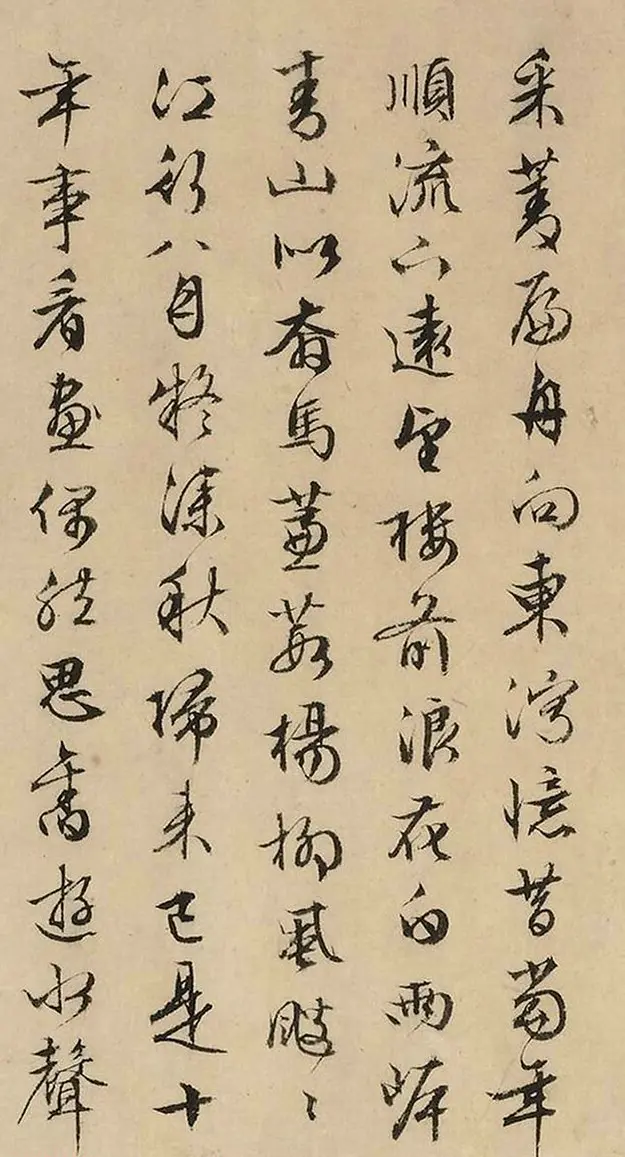 采菱扁舟向東灣憶昔當年
順流下遠望樓前浪花白兩岸
青山似奔馬蒹葭楊柳風颼〻
江行八月疑深秋歸來已是十
年事看畫偶然思舊遊水聲